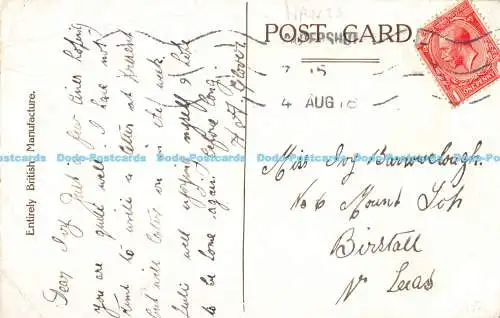 HANTS
POST CARD.
ALDERSHOT
7 15
4 AUG 16
ONE PENNY
Entirely British Manufacture.
Dear Ivy Just a few lines hoping
you are quite well. I have not
time to write a letter at present
but will later on in the week
well enjoying myself I hope
to be home again before long.
Miss Ivy
No 6 Mount Top
Birstall
Nr Leeds
Dodo-Postcards Dodo-Postcards Dodo-Postcards Dodo-Postcards Dodo-Postcards Dodo-Postcards